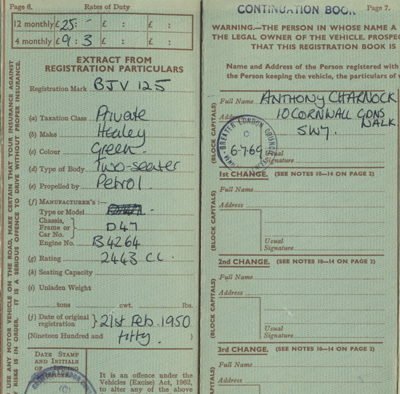 Page 6. Rates of Duty
12 monthly £25:- £ : £ :
4 monthly £9:3 £ : £ :
EXTRACT FROM
REGISTRATION PARTICULARS
Registration Mark BJV 125
(a) Taxation Class Private
(b) Make Healey
(c) Colour Green
(d) Type of Body Two-seater
(e) Propelled by Petrol.
(f) MANUFACTURER'S :—
Type or Model
Chassis, Frame or Car No. D47
Engine No. B4264
(g) Rating 2443 C.C.
(h) Seating Capacity
(i) Unladen Weight
tons cwt. lbs.
(j) Date of original registration } 21st Feb. 1950
(Nineteen Hundred and fifty.
DATE STAMP
AND INITIALS
It is an offence under the
Vehicles (Excise) Act, 1962,
to alter any of the above
USE ANY MOTOR VEHICLE ON THE ROAD, MAKE CERTAIN THAT YOUR INSURANCE AGAINST
RISKS IS IN ORDER. IT IS A SERIOUS OFFENCE TO DRIVE WITHOUT PROPER INSURANCE.
CONTINUATION BOOK Page 7.
WARNING.—THE PERSON IN WHOSE NAME A
THE LEGAL OWNER OF THE VEHICLE. PROSPE
THAT THIS REGISTRATION BOOK IS
Name and Address of the Person registered
the Person keeping the vehicle, the particulars of
(BLOCK CAPITALS)
Full Name ANTHONY CHARNOCK
Address 10 CORNWALL GDNS
WALK
SW7.
GREATER LONDON COUNCIL
6-7-69
Usual Signature
1st CHANGE. (SEE NOTES 10—14 ON PAGE 2)
(BLOCK CAPITALS)
Full Name
Address
Usual Signature
2nd CHANGE. (SEE NOTES 10—14 ON PAGE 2)
(BLOCK CAPITALS)
Full Name
Address
Usual Signature
3rd CHANGE. (SEE NOTES 10—14 ON PAGE 2)
Full Name